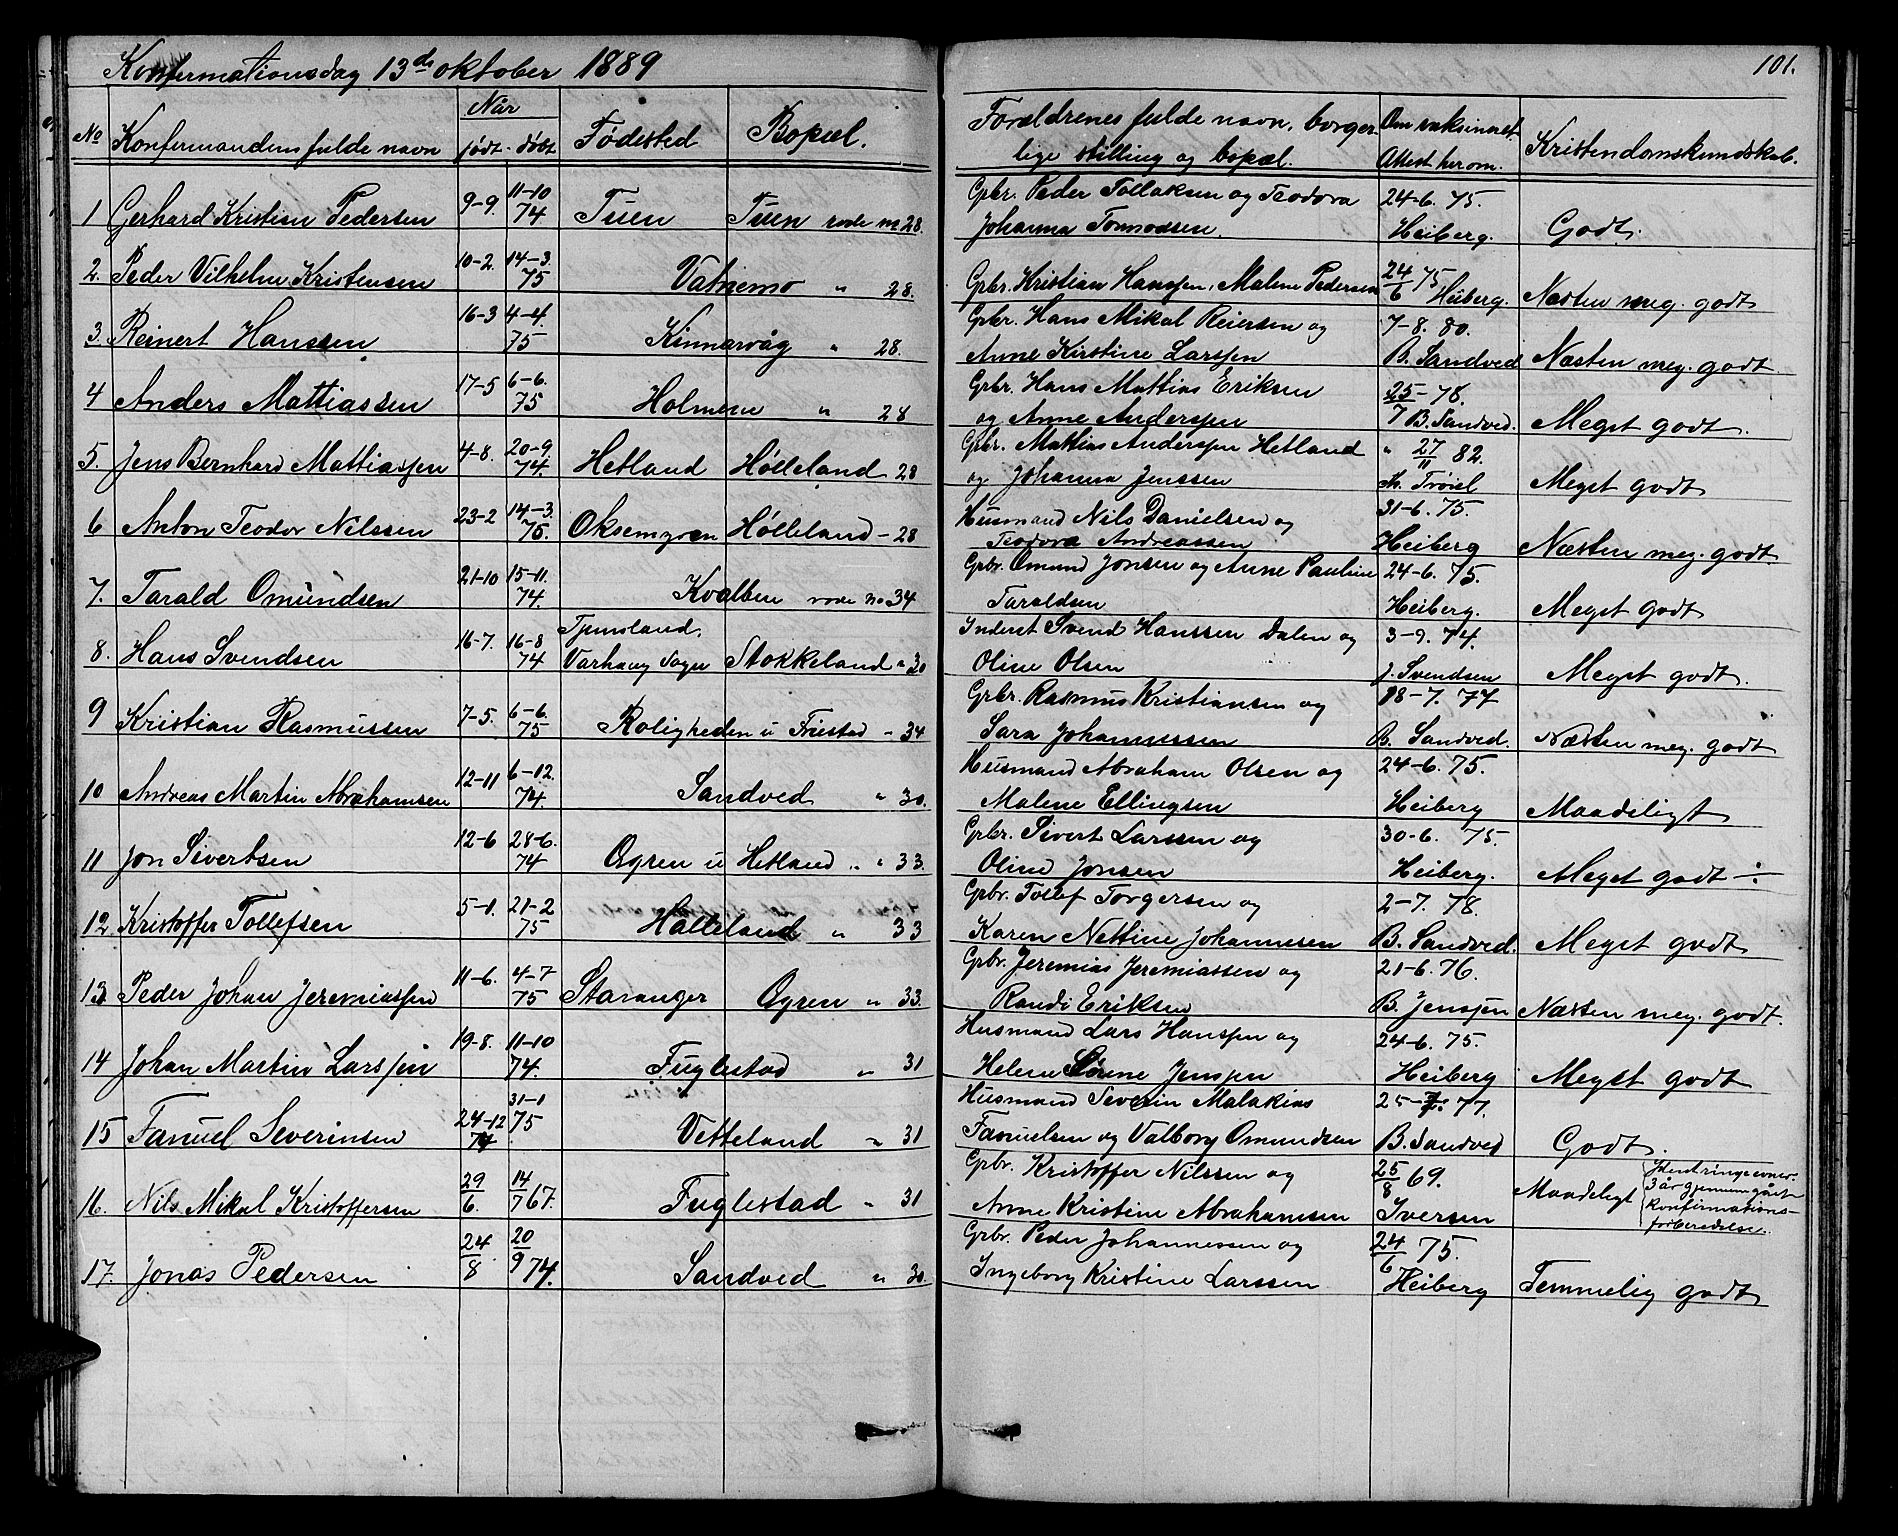 Konfermationsdag 13de oktober 1889
101.
No Konfermandens fulde navn Når født. døbt Fødested Bopæl. Forældrenes fulde navn, borger- Om vaksineret
lige stilling og bopæl. Attest herom. Kristendomskundskab.
1 Gerhard Kristian Pedersen 9-9. 11-10 74 Tuen Tuen rode no 28. Grbr. Peder Tollaksen og Teodora 24-6. 75.
Johanna Tormodsen. Heiberg. Godt.
2. Peder Vilhelm Kristensen 10-2. 14-3. 75 Vatnemo " 28. Grbr. Kristian Hanssen, Malene Pedersen 24/6 75 Heiberg. Næsten meg. godt
3. Reinert Hanssen 16-3 4-4. 75 Kinnarvåg " 28. Grbr. Hans Mikal Reiersen og 7-8. 80.
Anne Kirstine Larssen B. Sandved Næsten meg. godt
4 Anders Mattiassen 17-5 6-6. 75 Holmen " 28 Grbr. Hans Mattias Eriksen 25-78.
og Anne Anderssen 7 B. Sandved. Meget godt.
5. Jens Bernhard Mattiassen 4-8. 20-9. 74. Hetland Hølleland 28 Grbr. Mattias Anderssen Hetland " 27/11 82.
og Johanna Jenssen Th. Trøiel Meget godt
6 Anton Teodor Nilssen 23-2 14-3. 75. Oksemyren Hølleland - 28 Husmand Nils Danielsen og 31-6. 75.
Teodora Andreassen Heiberg Næsten meg. godt
7. Tarald Omundsen 21-10 15-11. 74. Kvalben rode no 34 Grbr. Omund Jonsen og Anne Pauline 24-6. 75.
Taraldsen Heiberg. Meget godt
8. Hans Svendsen 16-7. 16-8 74 Tunsland, Varhaug Sogn Stokkeland " 30 Inderst Svend Hanssen Dalen og 3-9. 74.
Oline Olsen J. Svendsen Meget godt.
9 Kristian Rasmussen 7-5. 6-6. 75 Roligheden u Friestad - 34 Grbr. Rasmus Kristiansen og 18-7. 77
Sara Johannessen B. Sandved. Næsten meg. godt
10 Andreas Martin Abrahamsen 12-11 6-12. 74. Sandved " 30. Husmand Abraham Olsen og 24-6. 75.
Malene Ellingsen Heiberg Maadeligt
11 Jon Sivertsen 12-6 28-6. 74 Ogren u Hetland " 33. Grbr. Sivert Larssen og 30-6. 75.
Oline Jonsen Heiberg. Meget godt ÷
12 Kristoffer Tollefsen 5-1. 21-2 75 Hølleland " 33 Grbr. Tollef Torgersen og 2-7. 78.
Karen Nettine Johannesen B. Sandved. Meget godt
13 Peder Johan Jeremiassen 11-6. 4-7 75 Stavanger Ogren " 33. Grbr. Jeremias Jeremiassen og 21-6. 76.
Randi Eriksen B. Jenssen Næsten meg. godt.
14 Johan Martin Larssen 19-8. 11-10 74. Fuglestad " 31 Husmand Lars Hanssen og 24-6. 75.
Helene Sørine Jenssen Heiberg Meget godt
15 Fanuel Severinsen 24-12 74 31-1 75 Vetteland " 31 Husmand Severin Malakias 25- 77.
Fanuelsen og Valborg Omundsen B. Sandved Godt.
16. Nils Mikal Kristoffersen 29/6. 14/7 67. Fuglestad " 31 Grbr. Kristoffer Nilssen og 25/8 69.
Anne Kristine Abrahamsen Iversen Maadeligt
3 år gjennemgået
konfirmations-
forberedelse.
17. Jonas Pedersen 24/8 20/9 74. Sandved " 30. Grbr. Peder Johannessen og 24/6 75.
Ingeborg Kristine Larssen Heiberg Temmelig godt